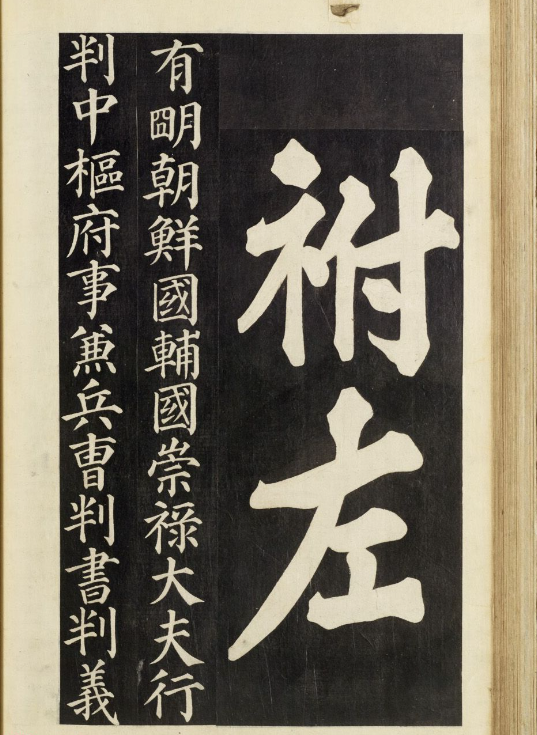 祔左
有朙朝鮮國輔國崇祿大夫行
判中樞府事兼兵曹判書判義